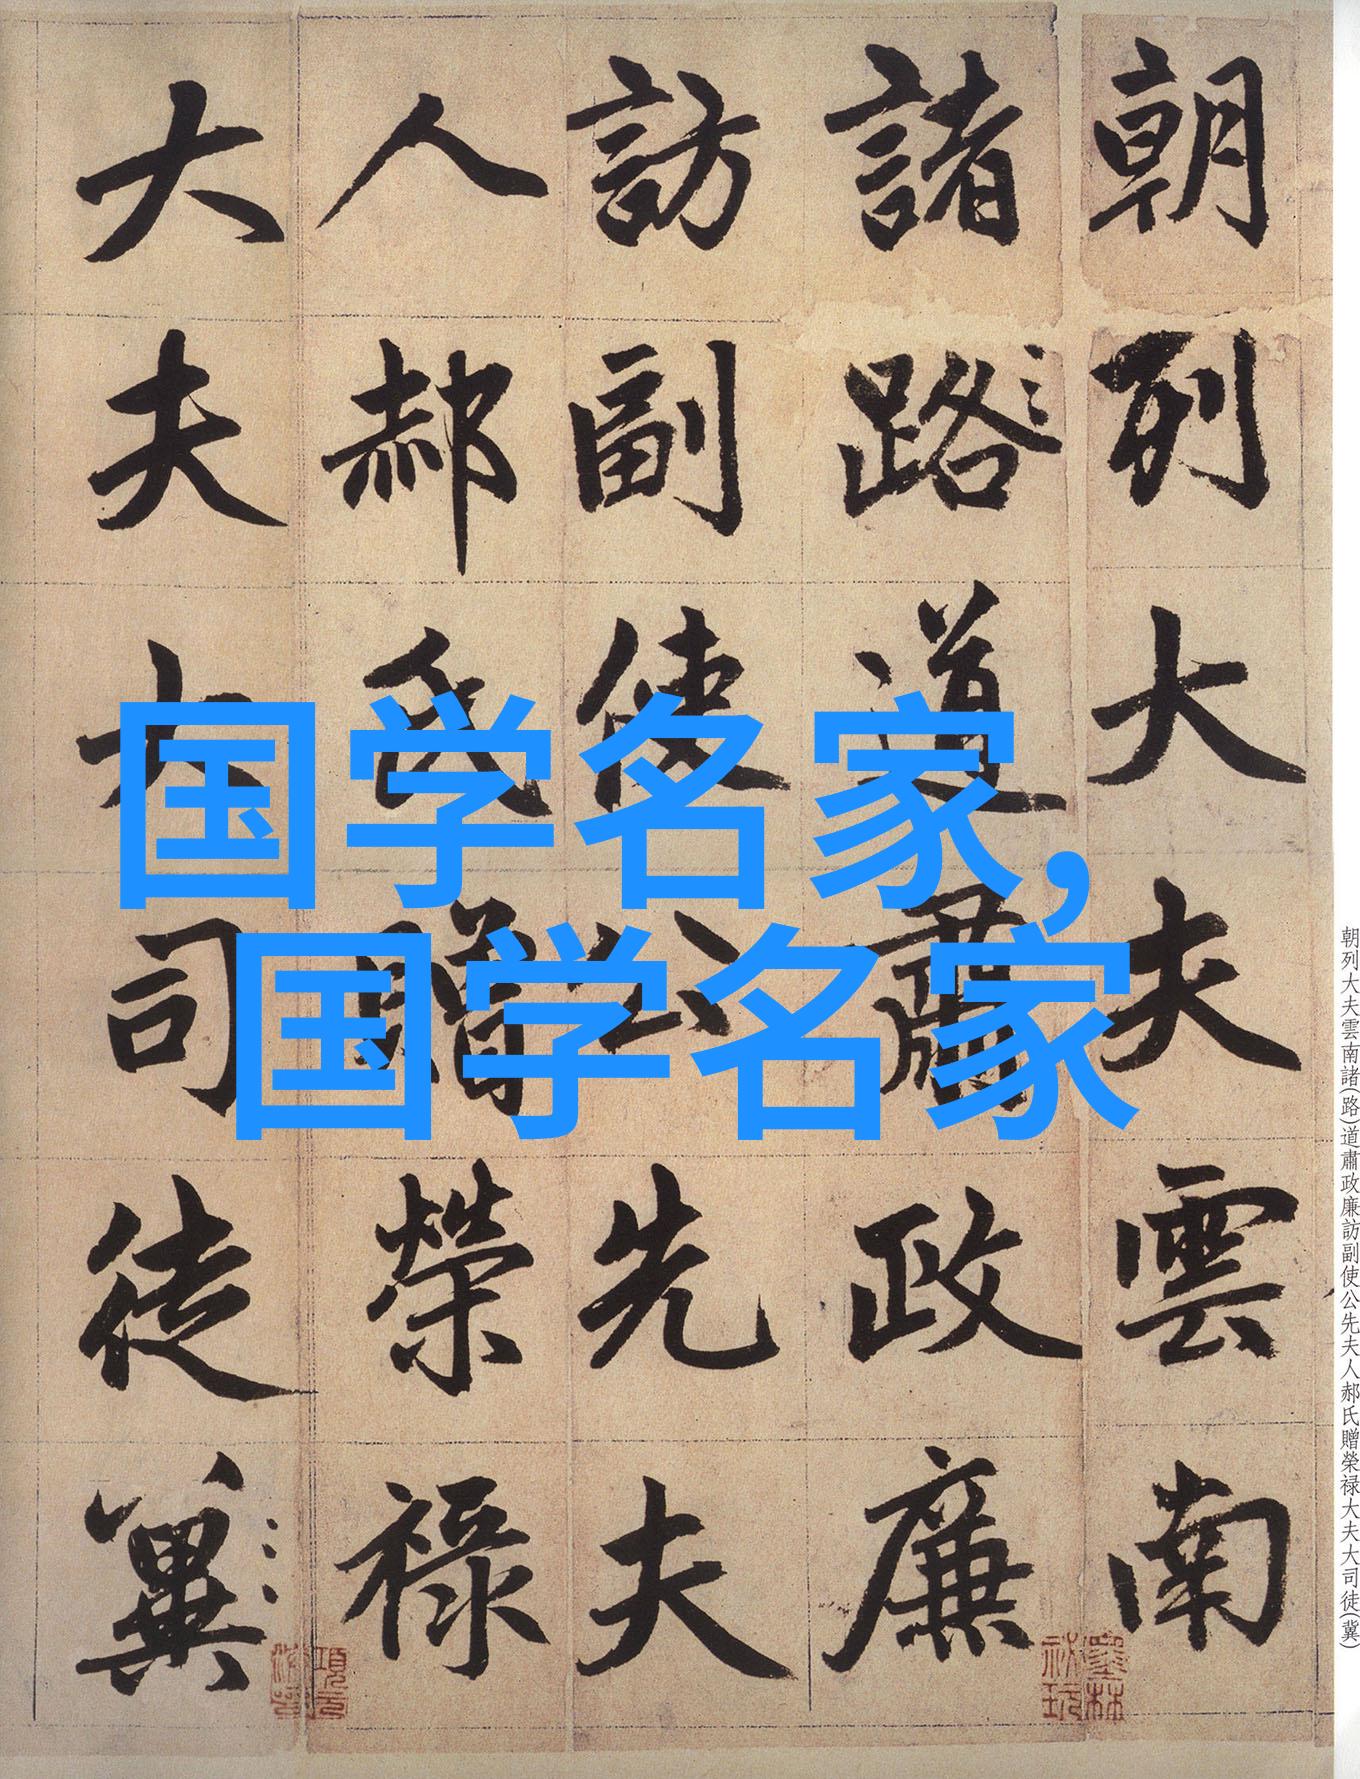 朝列大夫雲南
諸路道肅政廉
訪副使公先夫
人郝氏贈榮祿
大夫大司徒冀
国学名家,
国学名家
朝列大夫雲南諸(路)道肅政廉訪副使公先夫人郝氏贈榮禄大夫大司徒(冀)